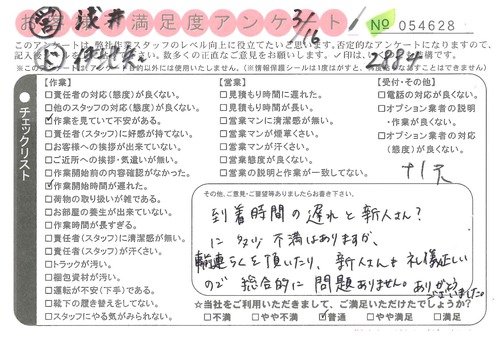 お客様満足度アンケート
㊂ 浅井
3/16
№ 054628
2884
このアンケートは、弊社作業スタッフのレベル向上に役立てたいと思います。否定的なアンケートになりますので、
【作業】
□責任者の対応(態度)が良くない。
□他のスタッフの対応(態度)が良くない。
☑作業を見ていて不安がある。
□責任者(スタッフ)に好感が持てない。
□お客様への挨拶が出来ていない。
□ご近所への挨拶・気遣いが無い。
□作業開始前の内容確認がなかった。
☑作業開始時間が遅れた。
□荷物の取り扱いが雑である。
□お部屋の養生が出来ていない。
□作業時間が長すぎる。
□責任者(スタッフ)に清潔感が無い。
□責任者(スタッフ)が汗くさい。
□トラックが汚い。
□梱包資材が汚い。
□運転が不安(下手)である。
□靴下の履き替えをしてない。
□スタッフにやる気がみられない。
【営業】
□見積もり時間に遅れた。
□見積もり時間が長い。
□営業マンに清潔感が無い。
□営業マンが煙草くさい。
□営業マンが汗くさい。
□営業態度が良くない。
□営業の説明と作業が一致してない。
【受付・その他】
□電話の対応が良くない。
□オプション業者の説明
・作業が良くない。
□オプション業者の対応
(態度)が良くない。
●チェックリスト
その他、ご意見・ご要望等ありましたらお書き下さい。
到着時間の遅れと新人さん?
に多少不満はありますが、
輸送らくを頂いたり、新人さんも礼儀正しい
ので総合的に問題ありません。ありがとう
ございました。
☆当社をご利用いただきまして、ご満足いただけたでしょうか?
□不満 □やや不満 ☑普通 □やや満足 □満足